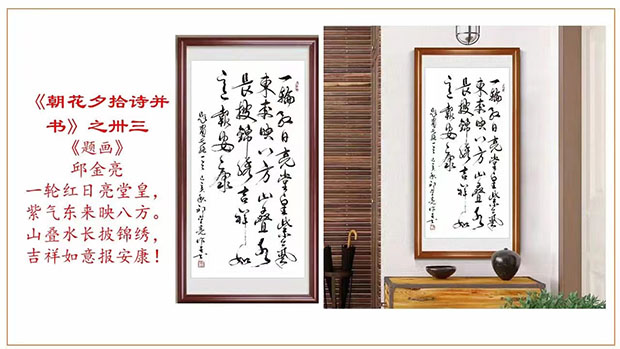 《朝花夕拾诗并
书》之卅三
《题画》
邱金亮
一轮红日亮堂皇，
紫气东来映八方。
山叠水长披锦绣，
吉祥如意报安康！
一輪红日亮堂皇紫氣
東来映八方山叠水
長披锦绣吉祥如
意报安康
一輪红日亮堂皇紫氣
東来映八方山叠水
長披锦绣吉祥如
意报安康